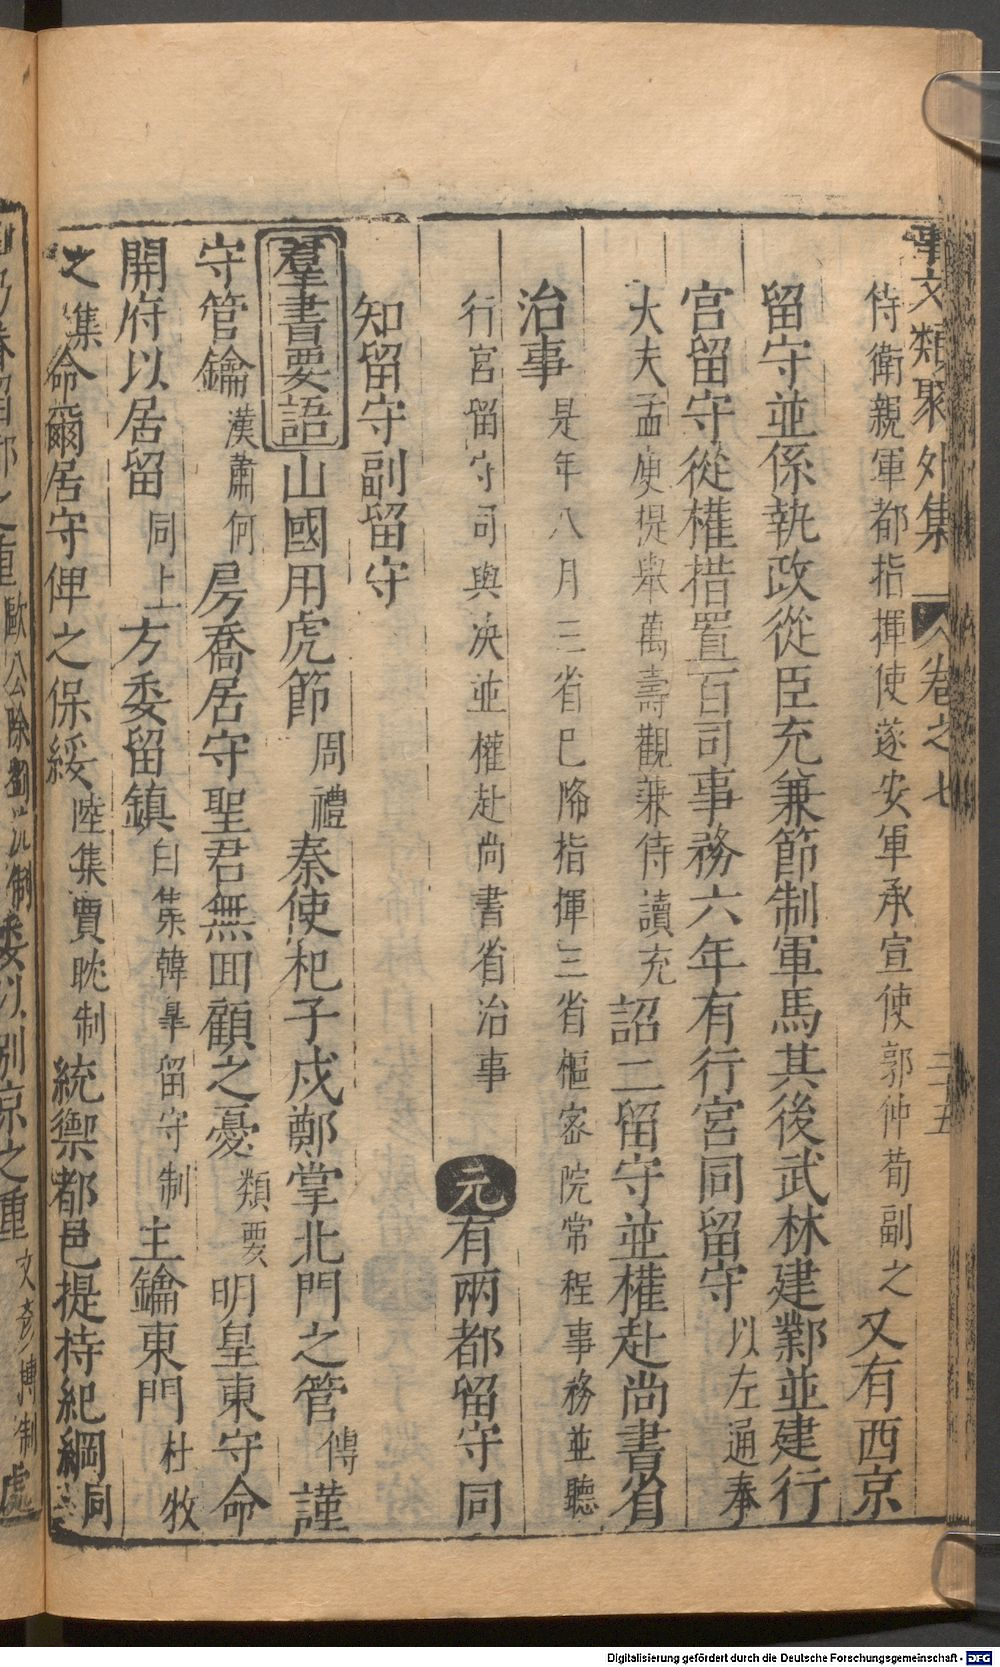 事文類聚外集 卷之七 三十五
侍衛親軍都指揮使遂安軍承宣使郭仲荀副之又有西京
留守並係執政從臣充兼節制軍馬其後武林建鄴並建行
宮留守從權措置百司事務六年有行宮同留守以左通奉
大夫孟庾提舉萬壽觀兼侍讀充詔二留守並權赴尚書省
治事是年八月三省已降指揮三省樞密院常程事務並聽
行宮留守司與決並權赴尚書省治事 元有兩都留守同
知留守副留守
羣書要語山國用虎節周禮秦使杞子戍鄭掌北門之管傳謹
守管鑰漢蕭何房喬居守聖君無囬顧之憂類要明皇東守命
開府以居留同上方委留鎮白集韓皐留守制主鑰東門杜牧
之集命爾居守俾之保綏陸集賈耽制統禦都邑提持紀綱同
Digitalisierung gefördert durch die Deutsche Forschungsgemeinschaft - DFG